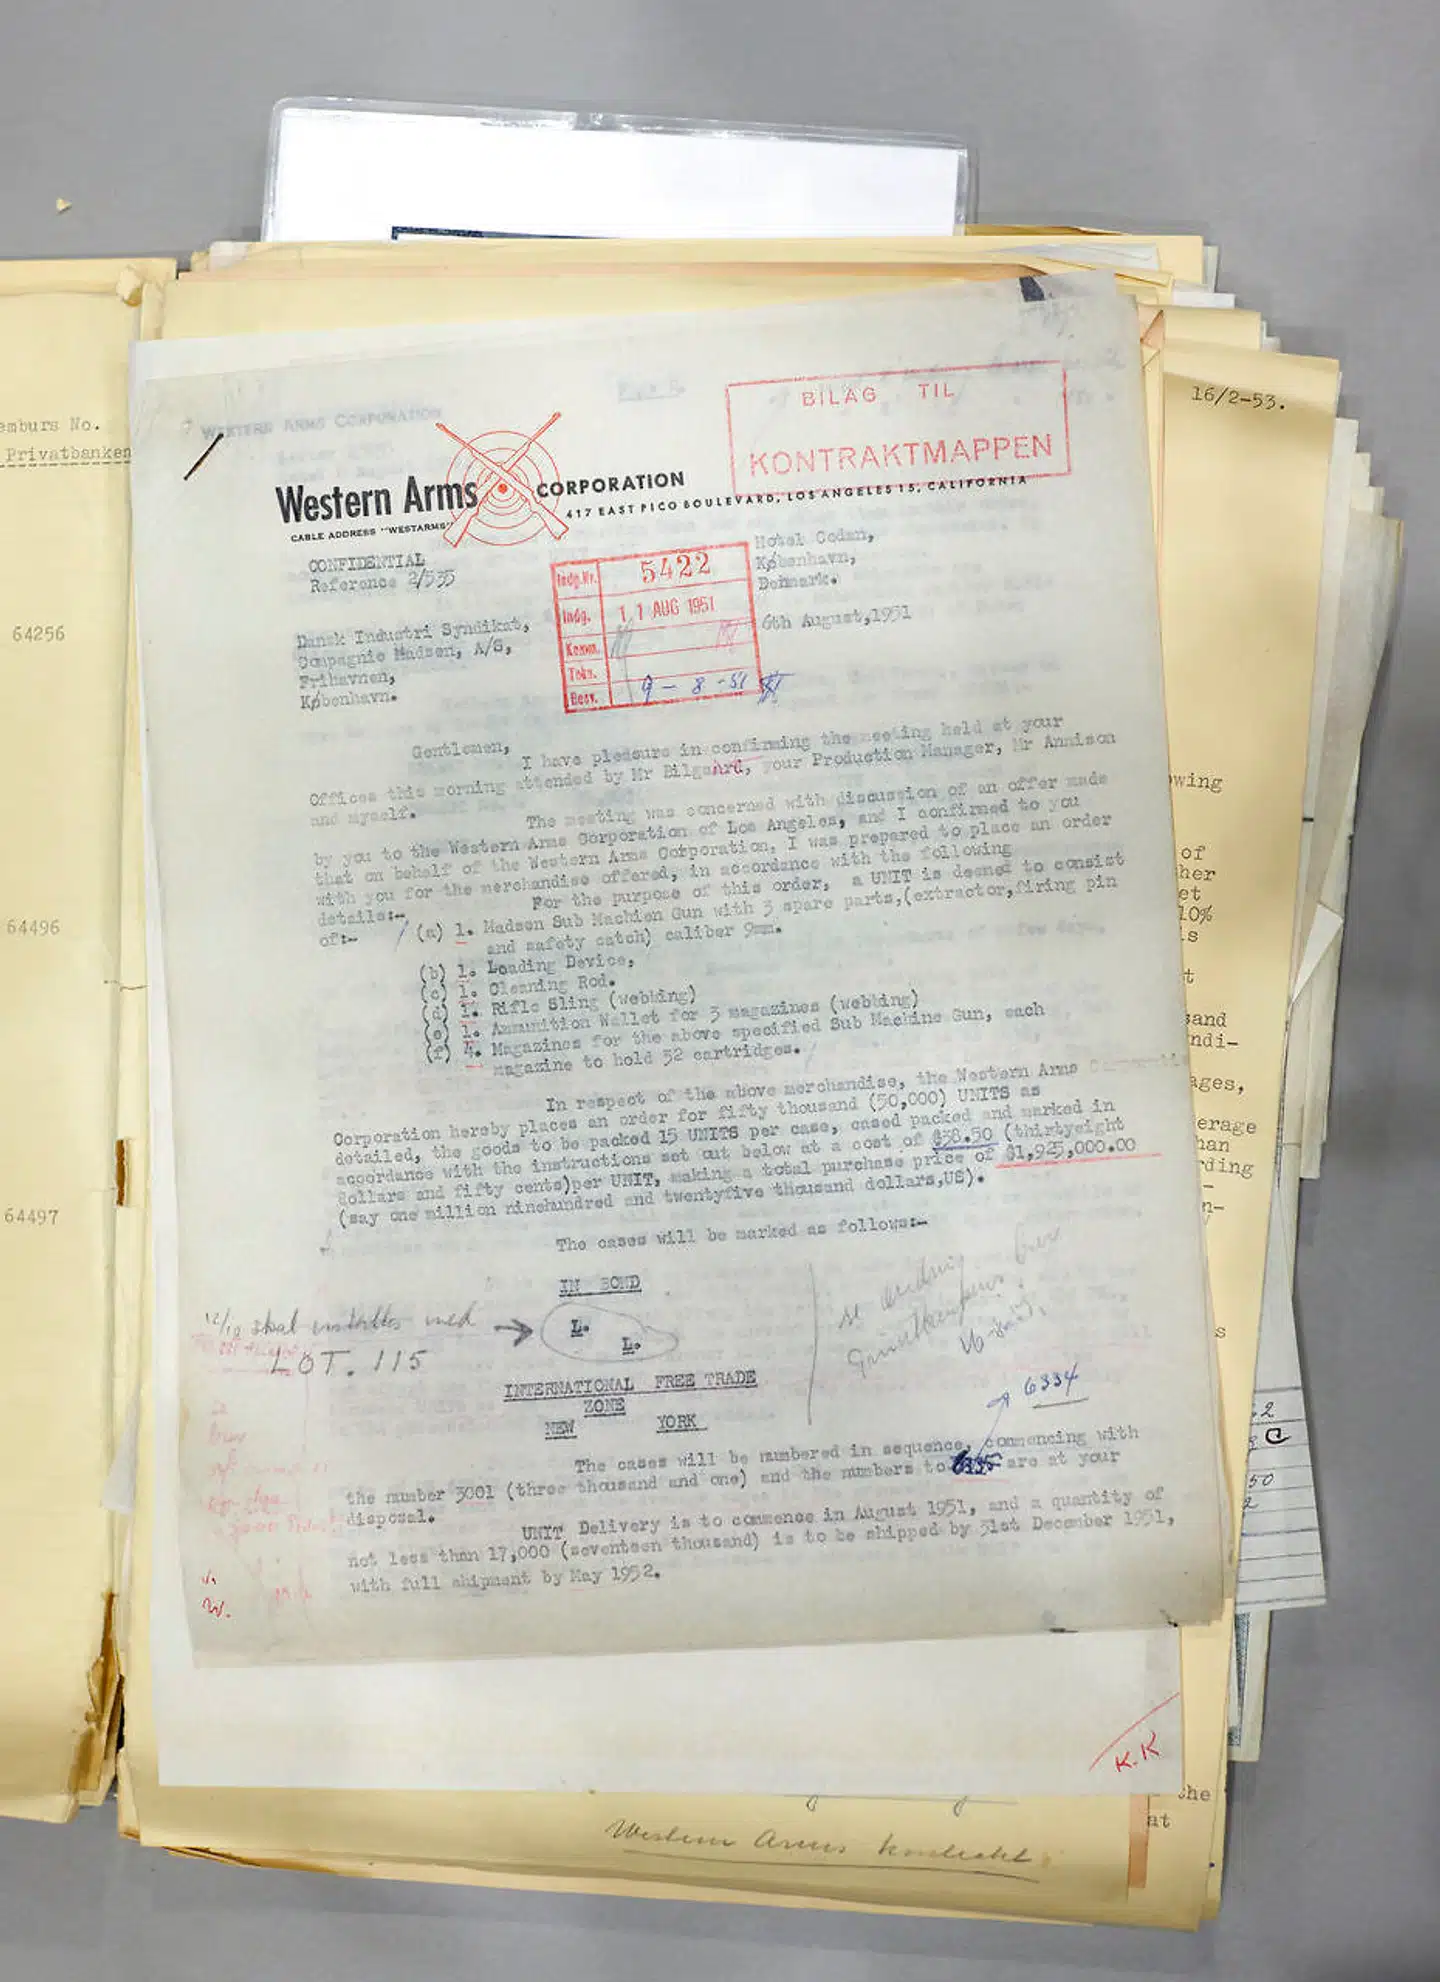 16/2-53.
emburs No.
Privatbanken
64256
64496
64497
BILAG TIL
KONTRAKTMAPPEN
WESTERN ARMS CORPORATION
Western Arms CORPORATION
417 EAST PICO BOULEVARD, LOS ANGELES 15, CALIFORNIA
CABLE ADDRESS "WESTARMS"
CONFIDENTIAL
Reference 2/535
Hotel Codan,
København,
Denmark.
6th August,1951
Indg.Nr. 5422
Indg. 11 AUG 1951
Komm.
Tekn.
Besv. 9-8-51
Dansk Industri Syndikat,
Compagnie Madsen, A/S,
Frihavnen,
København.
Gentlemen,
I have pleasure in confirming the meeting held at your
Offices this morning attended by Mr Bilgaard, your Production Manager, Mr Annison
and myself.
The meeting was concerned with discussion of an offer made
by you to the Western Arms Corporation of Los Angeles, and I confirmed to you
that on behalf of the Western Arms Corporation, I was prepared to place an order
with you for the merchandise offered, in accordance with the following
details:-
For the purpose of this order, a UNIT is deemed to consist
of:-
(a) 1. Madsen Sub Machien Gun with 3 spare parts,(extractor,firing pin
and safety catch) caliber 9mm.
(b) 1. Loading Device,
(c) 1. Cleaning Rod.
(d) 1. Rifle Sling (webbing)
(e) 1. Ammunition Wallet for 3 magazines (webbing)
(f) 4. Magazines for the above specified Sub Machine Gun, each
magazine to hold 32 cartridges.
In respect of the above merchandise, the Western Arms
Corporation hereby places an order for fifty thousand (50,000) UNITS as
detailed, the goods to be packed 15 UNITS per case, cased packed and marked in
accordance with the instructions set out below at a cost of $38.50 (thirtyeight
dollars and fifty cents)per UNIT, making a total purchase price of $1,925,000.00
(say one million ninehundred and twentyfive thousand dollars,US).
The cases will be marked as follows:-
IN BOND
12/10 skal erstattes med
LOT. 115
L.
L.
INTERNATIONAL FREE TRADE
ZONE
NEW YORK
6334
The cases will be numbered in sequence, commencing with
the number 3001 (three thousand and one) and the numbers to 6335 are at your
disposal.
UNIT Delivery is to commence in August 1951, and a quantity of
not less than 17,000 (seventeen thousand) is to be shipped by 31st December 1951,
with full shipment by May 1952.
K.K
Western Arms kontrakt
owing
of
her
et
10%
is
t
sand
ndi-
ages,
verage
han
rding
n-
s
50
2
the
at